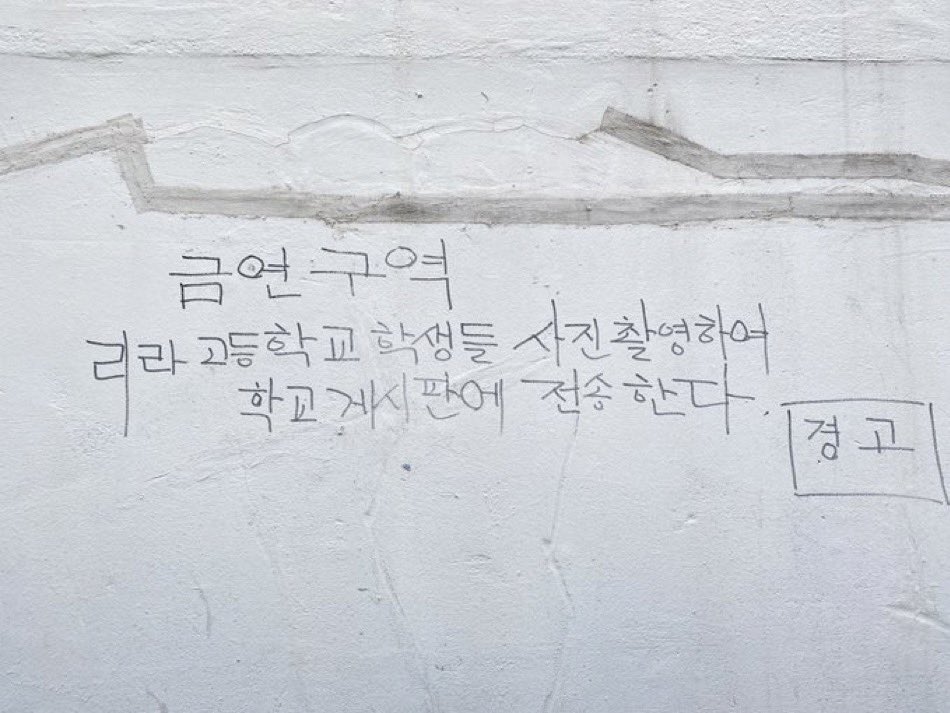 금연 구역
리라 고등학교 학생들 사진 촬영하여
학교 게시판에 전송한다.
경고